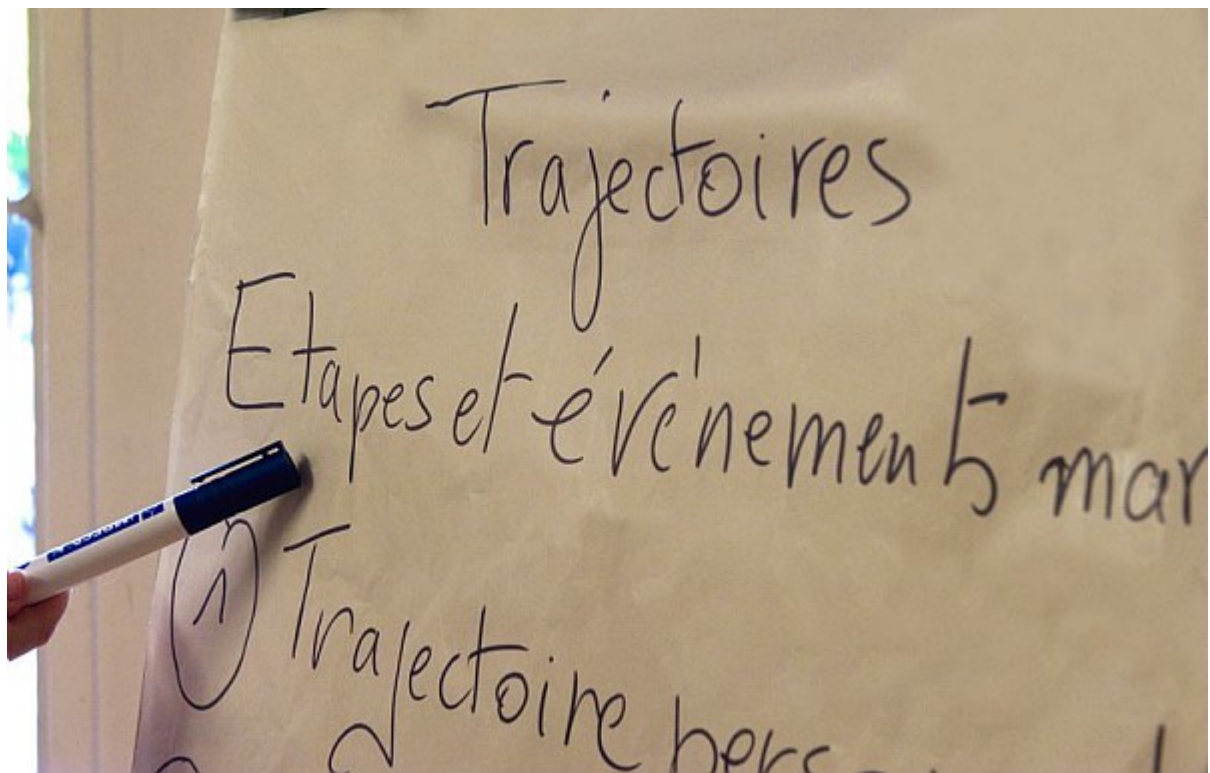 Trajectoires
Etapes et événements mar
① Trajectoire pers